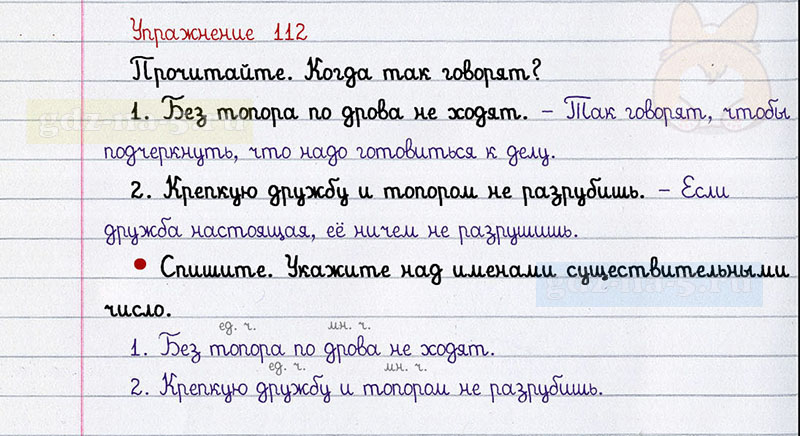 Упражнение 112
Прочитайте. Когда так говорят?
1. Без топора по дрова не ходят. – Так говорят, чтобы
подчеркнуть, что надо готовиться к делу.
2. Крепкую дружбу и топором не разрубишь. – Если
дружба настоящая, её ничем не разрушишь.
• Спишите. Укажите над именами существительными
число.
ед. ч. мн. ч.
1. Без топора по дрова не ходят.
ед. ч. мн. ч.
2. Крепкую дружбу и топором не разрубишь.
gdz-na-5.ru
gdz-na-5.ru